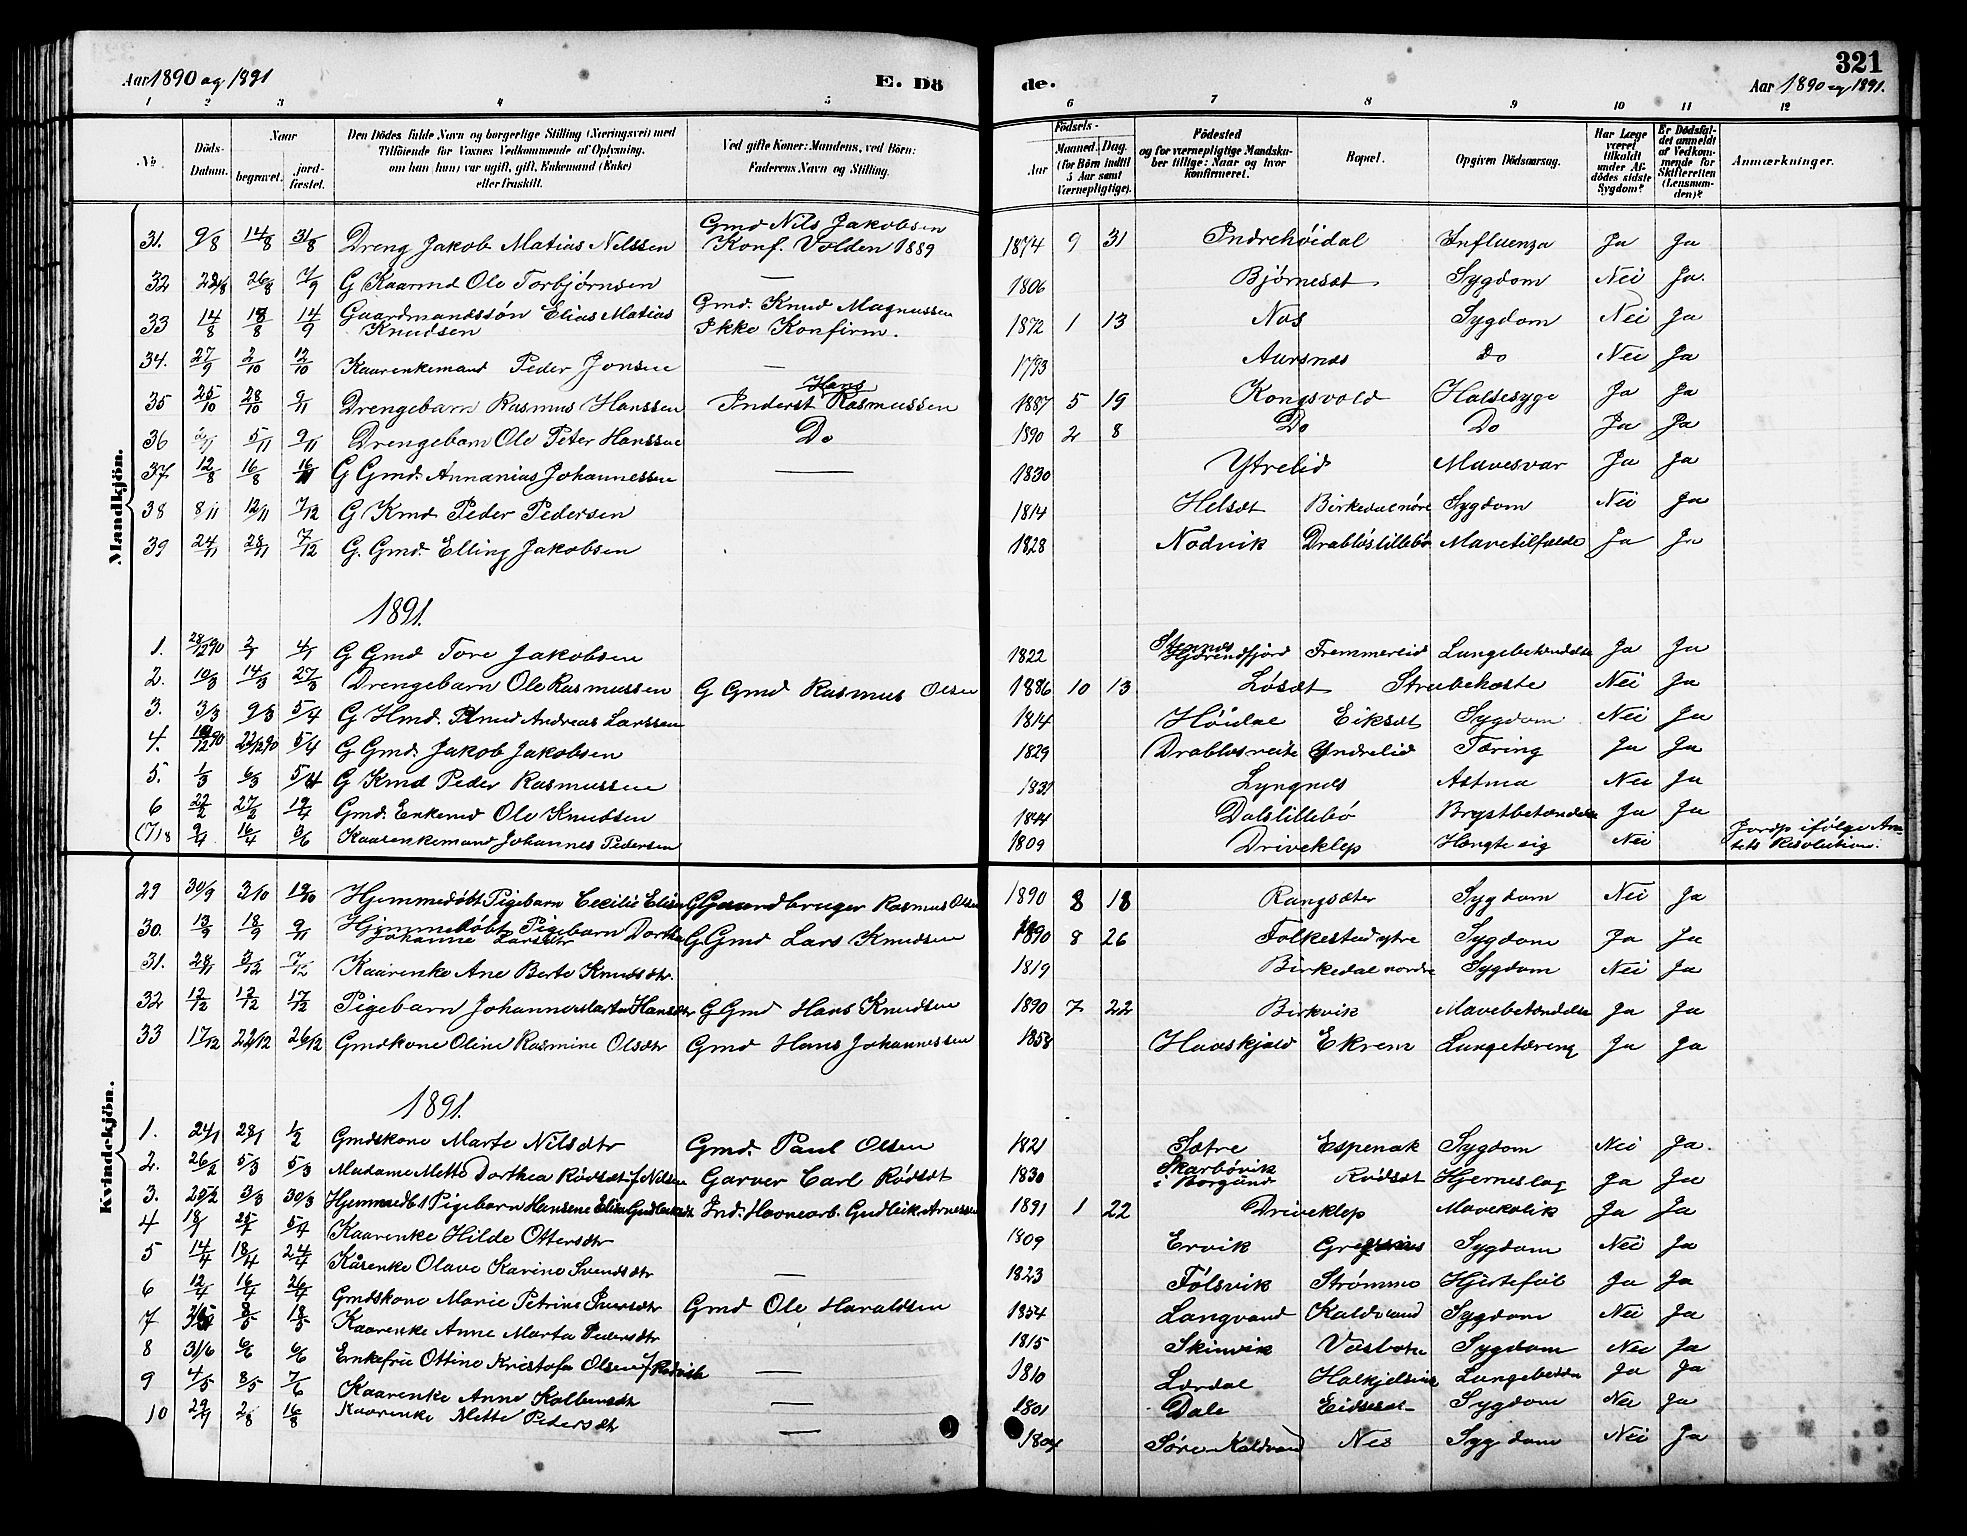 321
Aar 1890 og 1891
E. Dö
de.
Aar 1890 og 1891.
1 2 3 4 5 6 7 8 9 10 11 12
No.
Döds-Datum.
Naar
begravet.
jord-fæstet.
Den Dödes fulde Navn og borgerlige Stilling (Næringsvei) med
Tilföiende for Voxnes Vedkommende af Oplysning,
om han (hun) var ugift, gift, Enkemand (Enke)
eller fraskilt.
Ved gifte Koner: Mandens, ved Börn:
Faderens Navn og Stilling.
Födsels-
Aar
Maaned. Dag.
(for Börn indtil
5 Aar samt
Værnepligtige).
Födested
og for værnepligtige Mandska-
ber tillige: Naar og hvor
konfirmeret.
Bopæl.
Opgiven Dödsaarsag.
Har Læge
været
tilkaldt
under Af-
dödes sidste
Sygdom?
Er Dödsfal-
det anmeldt
af Vedkom-
mende for
Skifteretten
(Lensman-
den)?
Anmærkninger.
Mandkjön.
31. 9/8 14/8 31/8 Dreng Jakob Matias Nilssen Gmd Nils Jakobsen Konf. Volden 1889 1874 9 31 Indrehöidal Influenza Ja Ja
32 22/8 26/8 7/9 G Kaarmd Ole Torbjørnsen — 1806 Bjørnesæt Sygdom Nei Ja.
33 14/8 18/8 14/9 Gaardmandssön Elias Matias Knudsen Gmd. Knud Magnussen Ikke Konfirm. 1872 1 13 Nos Sygdom Nei Ja
34. 27/9 2/10 12/10 Kaarenkemand Peder Jonsen — 1793 Aursnes Do Nei Ja
35 25/10 28/10 9/11 Drengebarn Rasmus Hanssen Inderst Hans Rasmussen 1887 5 19 Kongsvold Halsesyge Ja Ja
36 5/11 9/11 Drengebarn Ole Peter Hanssen Do 1890 2 8 Do Do Ja Ja
37. 12/8 16/8 G Gmd. Annanias Johannessen — 1830 Ytrelid Mavesvar Ja Ja
38 8/11 12/11 7/12 G Kmd Peder Pedersen 1814 Helsæt Birkedal nøre Sygdom Nei Ja
39 24/11 28/11 7/12 G. Gmd. Elling Jakobsen 1828 Nodvik Drabløslillebø Mavetilfælde Ja Ja
1891.
1. 28/12 90 2/1 4/1 G Gmd Tore Jakobsen 1822 Stennes Hjörendfjord Fremmerlid Lungebetændelse Ja Ja
2. 10/3 14/3 27/3 Drengebarn Ole Rasmussen G Gmd Rasmus Olsen 1886 10 13 Løsæt Strubehoste Nei Ja
3. 3/3 9/3 5/4 G Hmd. Knud Andreas Larssen 1814 Höidal Eiksæt Sygdom Nei Ja
4. 22/12 90 5/4 G Gmd. Jakob Jakobsen 1829 Yndrelid Tæring Ja Ja
5. 1/3 6/3 5/4 G Kmd Peder Rasmussen 1831 Lyngnes Astma Nei Ja
6 22/2 27/2 12/4 Gmd. Enkemd Ole Knudsen 1844 Dalslillebö Brystbetændelse Ja Ja
(7)8 9/4 16/4 3/6 Kaarenkemand Johannes Pedersen 1809 Driveklep Hængte sig Nei Jordp ifölge Amtets Resolution.
Kvindekjön.
29 30/9 3/10 Hjemmedöbt Pigebarn Cecilie Elise G Gaardbruger Rasmus Olsen 1890 8 18 Rangsæter Sygdom Nei Ja
30. 13/9 18/9 9/11 Hjemmedöbt Pigebarn Dorthe Johanne Larsdtr G Gmd Lars Knudsen 1890 8 26 Folkestad ytre Sygdom Ja Ja
31. 28/11 3/12 7/12 Kaarenke Ane Berte Knudsdtr. 1819 Birkedal nordre Sygdom Nei Ja
32 12/12 17/12 Pigebarn Johanne Marta Hansdtr G Gmd Hans Knudsen 1890 7 22 Birkvik Mavebetændelse Ja Ja
33 17/12 22/12 26/12 Gmdkone Oline Rasmine Olsdtr Gmd Hans Johannessen 1858 Havskjold Ekrem Lungetæring Ja Ja
1891.
1. 24/1 28/1 1/2 Gmdskone Marte Nilsdtr Gmd. Paul Olsen 1821 Sætre Espenak Sygdom Nei Ja.
2. 26/2 5/3 5/3 Madame Mette Dorthea Rödsæt f. Nilsen Garver Carl Rödsæt 1830 Skarbövik i Borgund Rödsæt Hjerneslag Ja Ja
3. 25/2 3/3 30/3 Hjemmedbt Pigebarn Hansene Elise Gudleiksdtr Ind. Havnearb. Gudleik Arnessen 1891 1 22 Driveklep Mavekolik Ja Ja
4 5/4 Kaarenke Hilde Ottersdtr 1809 Ervik Sygdom Nei Ja
5 14/4 18/4 24/4 Kårenke Olave Karine Svendsdtr — 1823 Følsvik Strømme Hjertefeil Ja Ja
6 12/4 16/4 26/4 Gmdskone Marie Petrine Iversdtr Gmd Ole Haraldsen 1854 Langvand Kaldvand Sygdom Nei Ja
7 8/5 18/5 Kaarenke Anne Marta Pedersdtr 1815 Skinvik Vasbotn Sygdom Nei Ja
8 31/6 6/6 6/6 Enkefru Ottine Kristofa Olsen f. — 1810 Lærdal Lungebetændelse Ja Ja
9 4/5 8/5 7/6 Kaarenke Anne Kolbensdtr — 1801 Dale Eidsæt Sygdom Nei Ja
10 29/7 2/8 16/8 Kaarenke Mette Pedersdtr — 1804 Søre Kaldvand Nes Sygdom Nei Ja